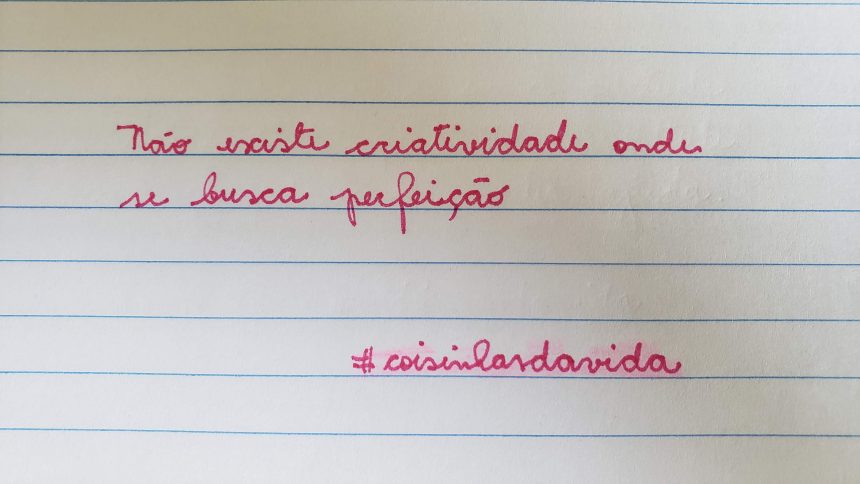 Não existe criatividade onde
se busca perfeição
#coisinhasdavida